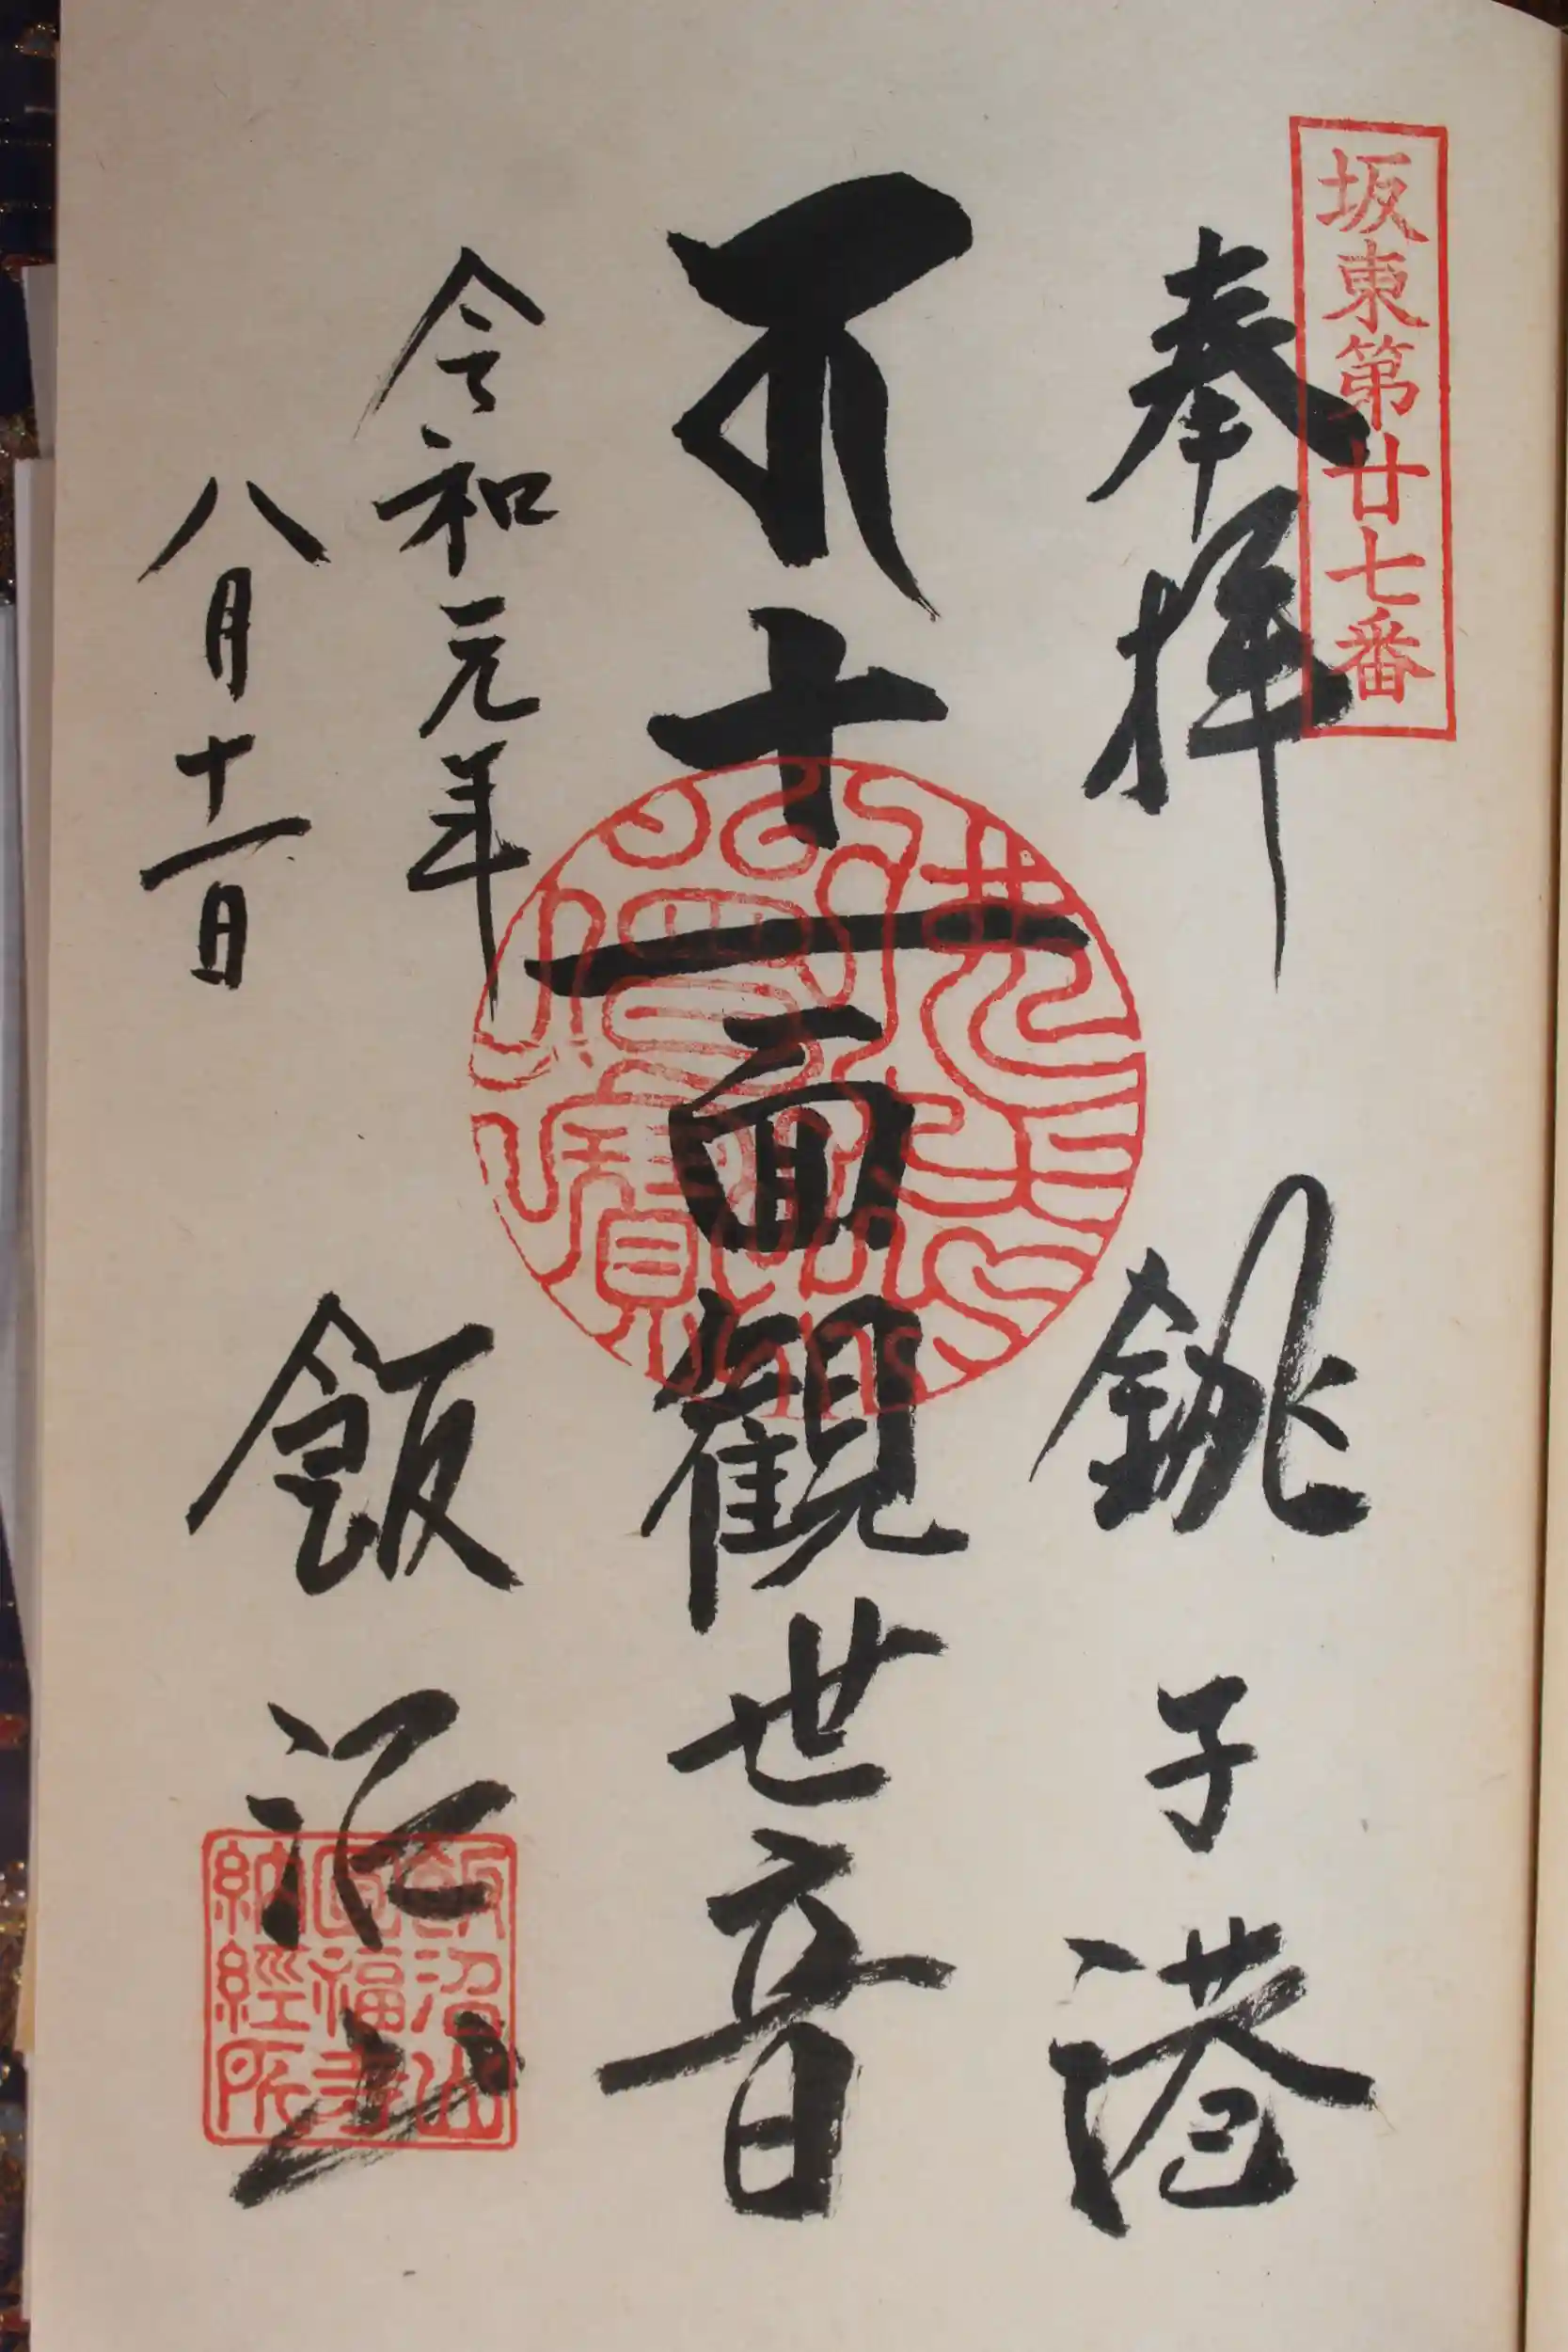 坂東第廿七番
奉拝
銚子港
十一面観世音
令和元年
八月十一日
飯沼山
飯沼山
圓福寺
納經所